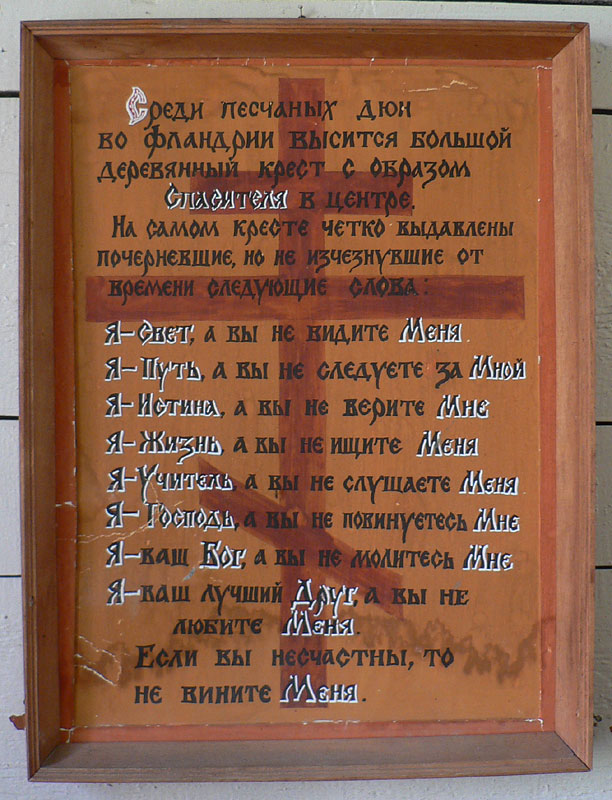 Среди песчаных дюн
во Фландрии высится большой
деревянный крест с образом
Спасителя в центре.
На самом кресте четко выдавлены
почерневшие, но не изчезнувшие от
времени следующие слова:
Я–Свет, а вы не видите Меня
Я–Путь, а вы не следуете за Мной
Я–Истина, а вы не верите Мне
Я–Жизнь, а вы не ищите Меня
Я–Учитель, а вы не слушаете Меня
Я–Господь, а вы не повинуетесь Мне
Я–ваш Бог, а вы не молитесь Мне
Я–ваш лучший Друг, а вы не
любите Меня.
Если вы несчастны, то
не вините Меня.